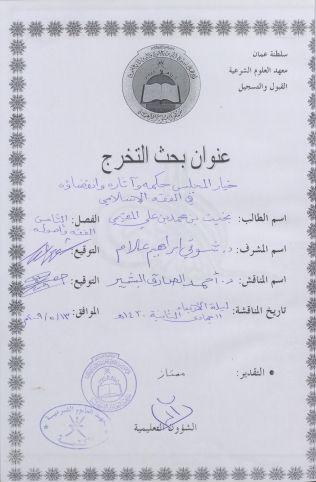 سلطنة عمان
معهد العلوم الشرعية
القبول والتسجيل
عنوان بحث التخرج
خيار المجلس حكمه وآثاره وانقضاؤه
في الفقه الإسلامي
اسم الطالب: بخيت بن محمد بن علي الفصل: الثامن
الفقه وأصوله
اسم المشرف: د. شوقي إبراهيم علام التوقيع:
اسم المناقش: د. أحمد الصادق البشير التوقيع:
ليلة الأربعاء
تاريخ المناقشة: جمادى الثانية ١٤٣٠هـ الموافق:
التقدير: ممتاز
الشؤون التعليمية